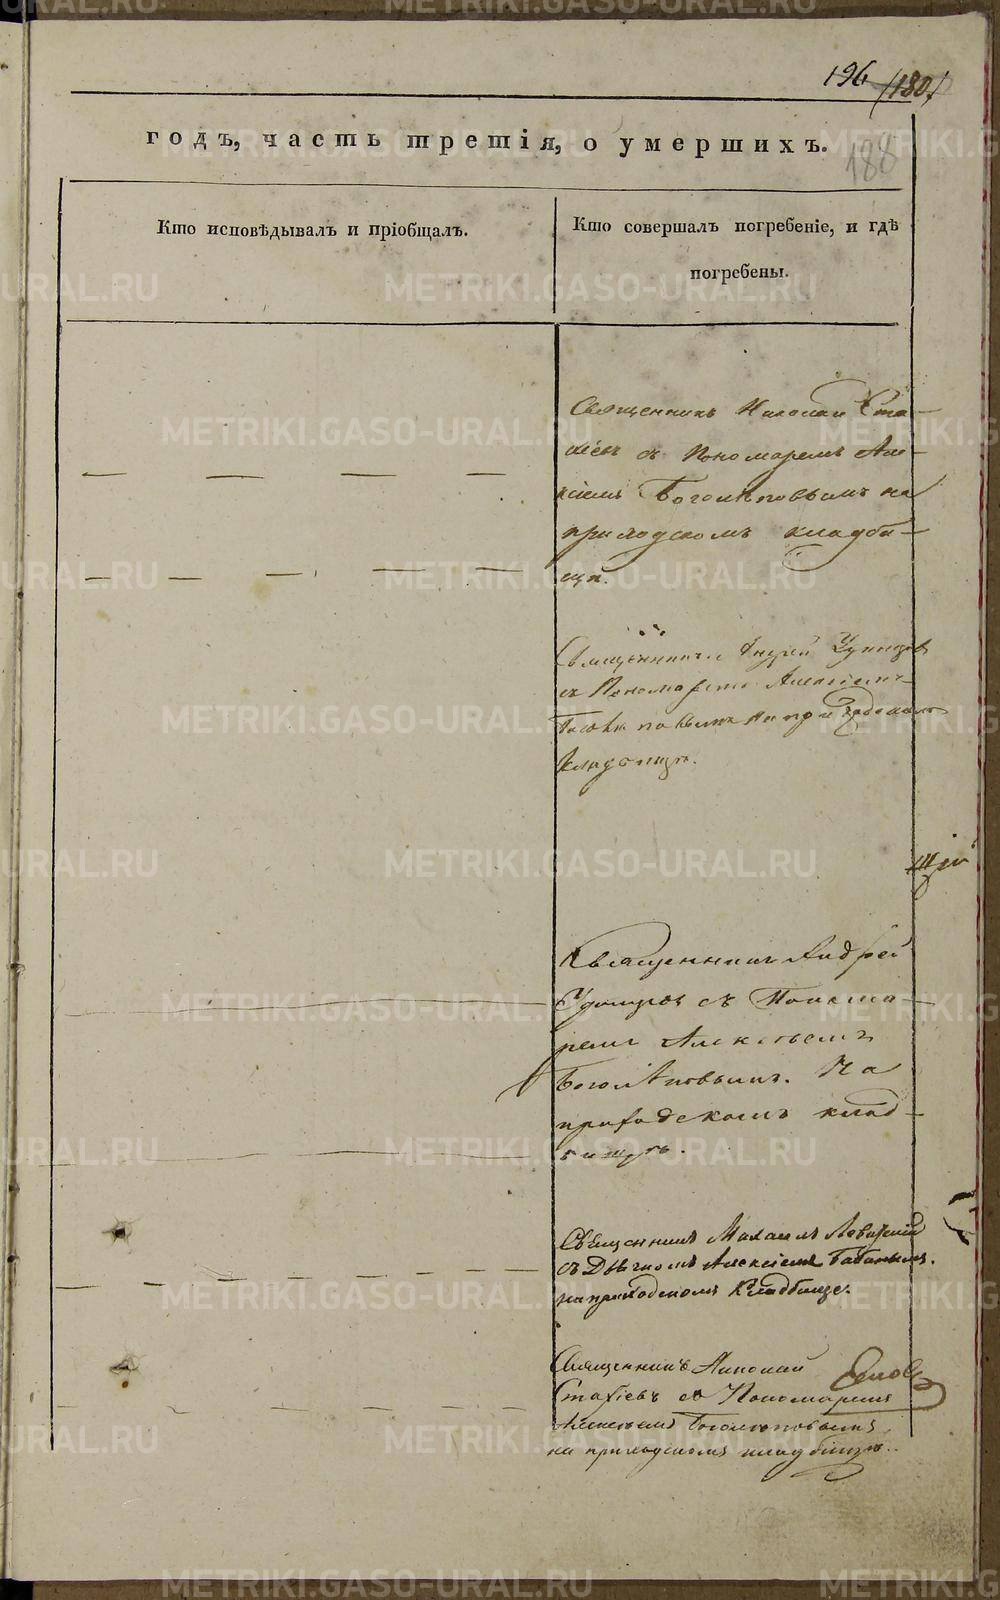 196
/180/
188
годъ, часть третія, о умершихъ.
Кто исповѣдывалъ и пріобщалъ.
Кто совершалъ погребеніе, и гдѣ
погребены.
Священникъ Николай Ста-
фіевъ съ Пономаремъ Але-
ксіемъ Боголѣповымъ на
приходскомъ кладби-
щѣ.
Священникъ Андрей
съ Пономаремъ Алексіемъ
Боголѣповымъ на приходскомъ
кладбищѣ.
Священникъ Андрей
съ Понома-
ремъ Алексѣемъ
Боголѣповымъ. На
приходскомъ клад-
бищѣ.
Священникъ Михаилъ
съ Дьячкомъ Алексіемъ Бабановымъ.
на приходскомъ Кладбище.
Священникъ Николай
Стафіевъ съ Пономаремъ
Алексѣемъ Боголѣповымъ
на приходскомъ кладбищѣ.
METRIKI.GASO-URAL.RU